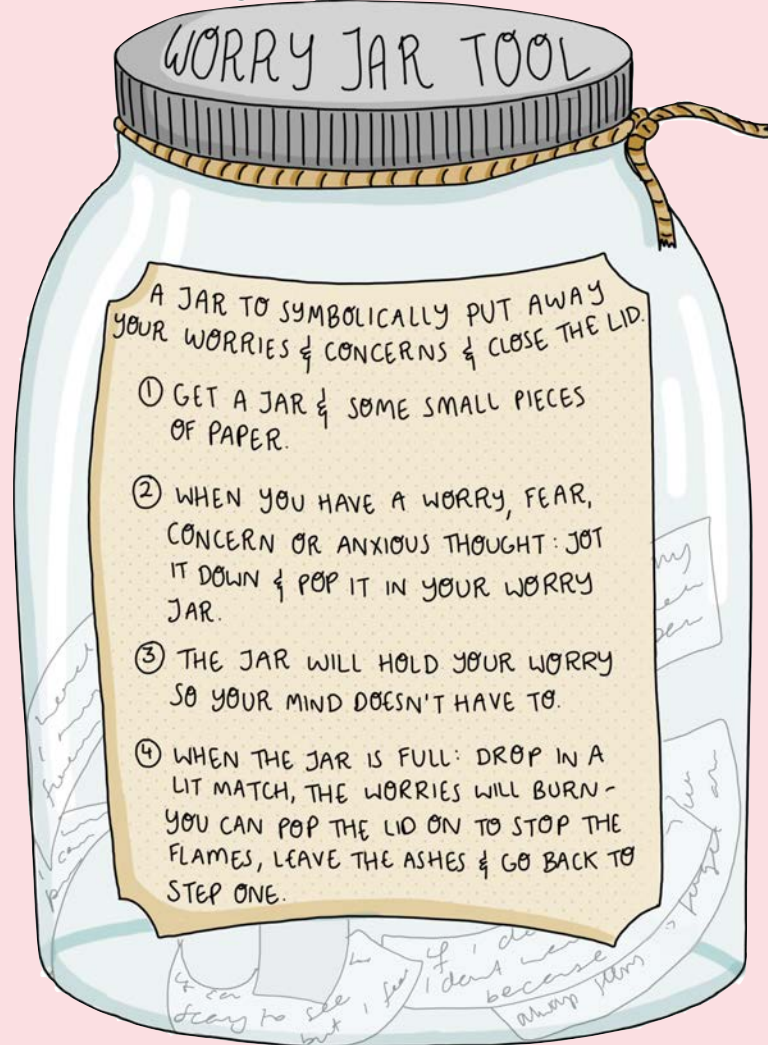 WORRY JAR TOOL
A JAR TO SYMBOLICALLY PUT AWAY
YOUR WORRIES & CONCERNS & CLOSE THE LID.
① GET A JAR & SOME SMALL PIECES
OF PAPER.
② WHEN YOU HAVE A WORRY, FEAR,
CONCERN OR ANXIOUS THOUGHT: JOT
IT DOWN & POP IT IN YOUR WORRY
JAR.
③ THE JAR WILL HOLD YOUR WORRY
SO YOUR MIND DOESN'T HAVE TO.
④ WHEN THE JAR IS FULL: DROP IN A
LIT MATCH, THE WORRIES WILL BURN-
YOU CAN POP THE LID ON TO STOP THE
FLAMES, LEAVE THE ASHES & GO BACK TO
STEP ONE.
my
if i
i don't
because
to see
but i